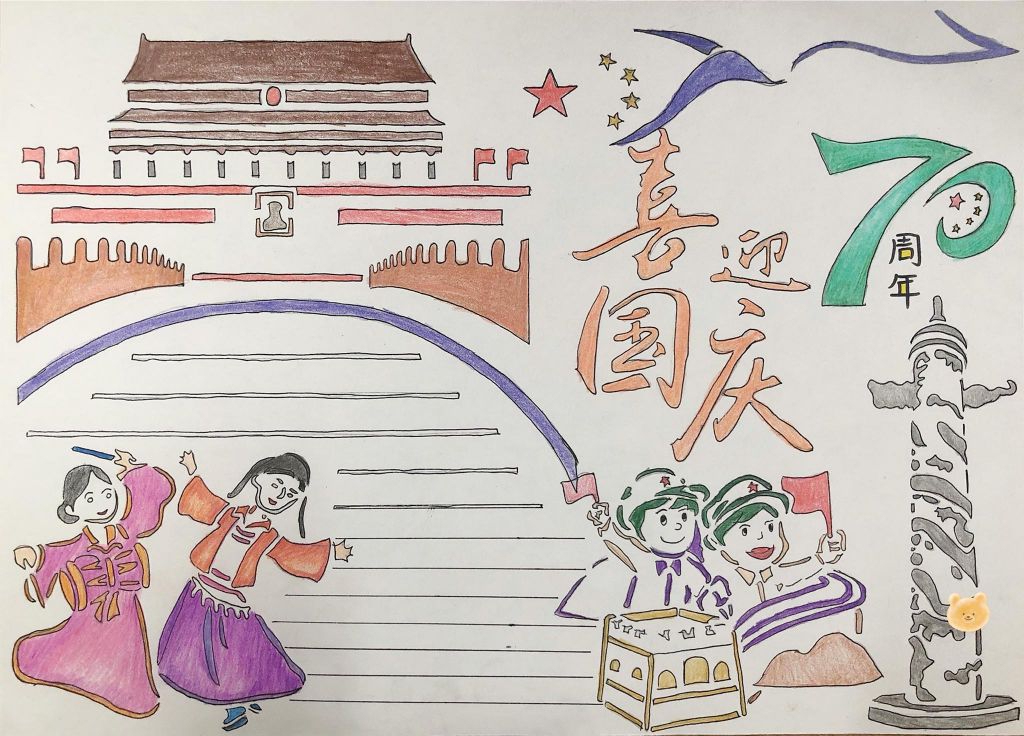 喜迎
国庆
70
周年